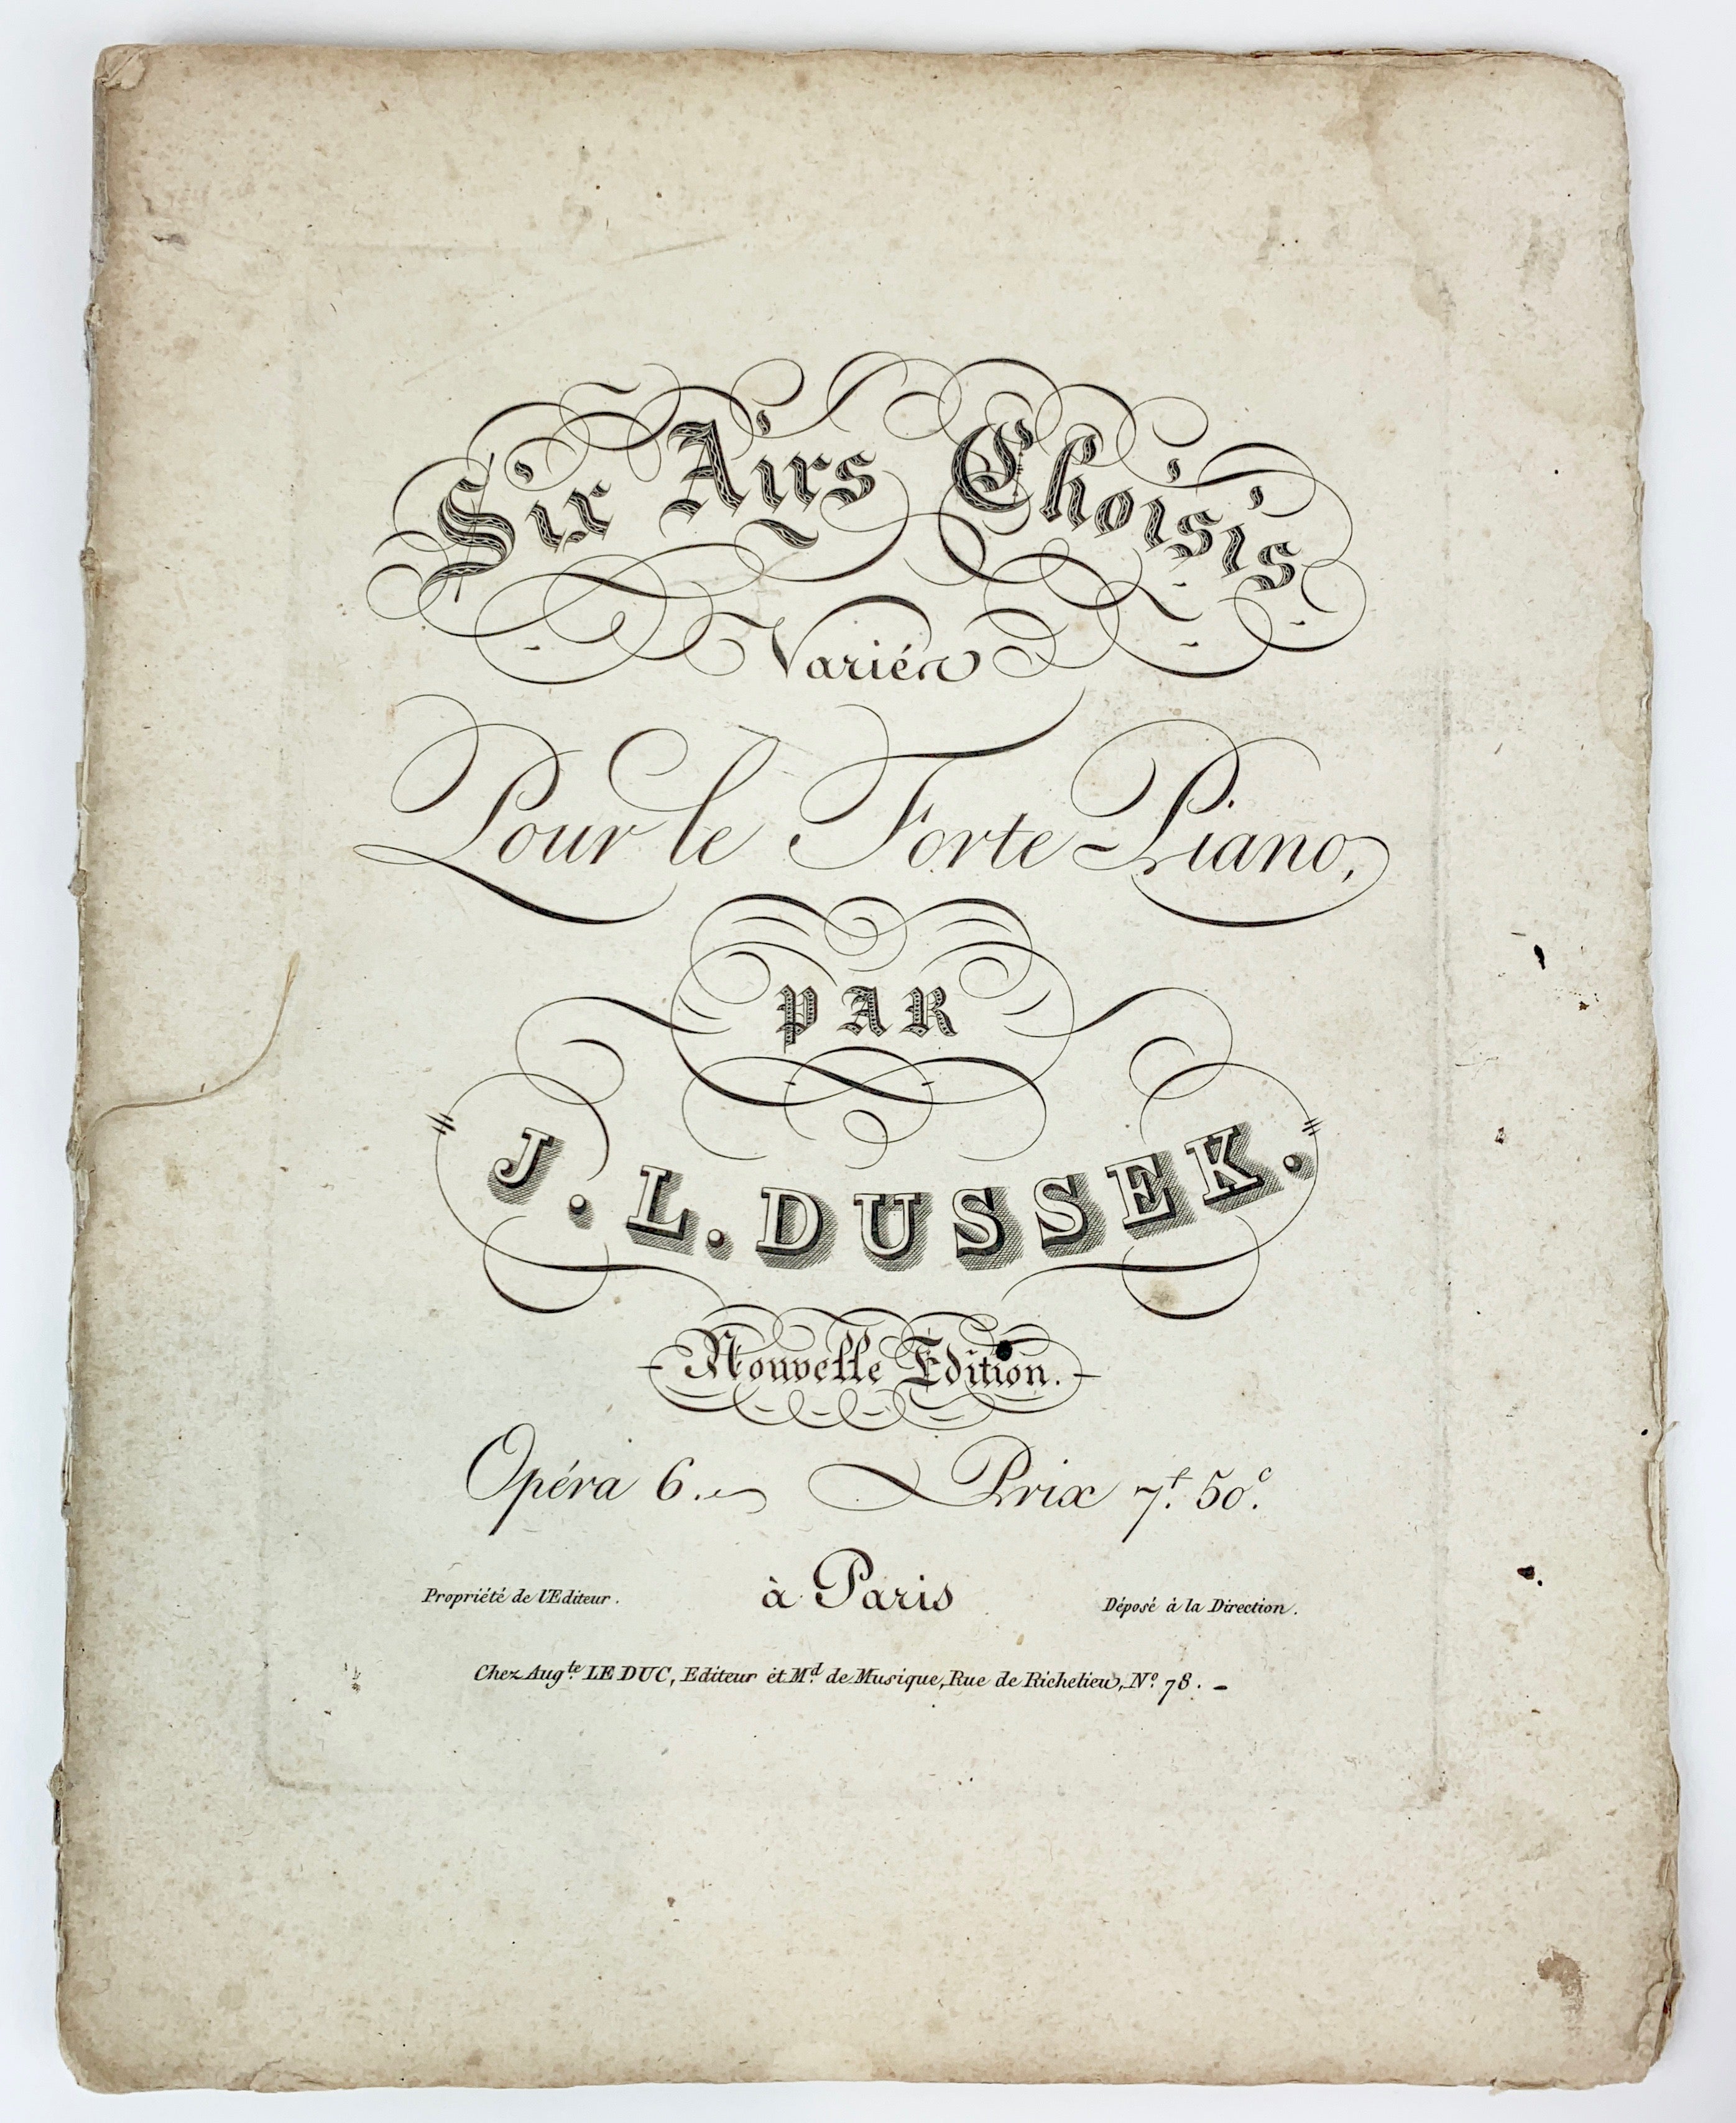 Six Airs Choisis
Variés
Pour le Forte-Piano,
PAR
J. L. DUSSEK.
Nouvelle Edition.
Opéra 6.e Prix 7.f 50.c
à Paris
Propriété de l'Editeur.
Déposé à la Direction.
Chez Aug.te LE DUC, Editeur et M.d de Musique, Rue de Richelieu, N.o 78.